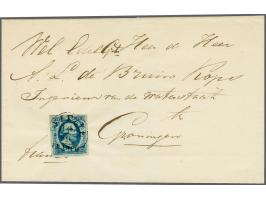 Wel Edelge Heer de Heer
A. L. de Bruin Kops
Ingenieur van de waterstaat
te
Groningen
franco